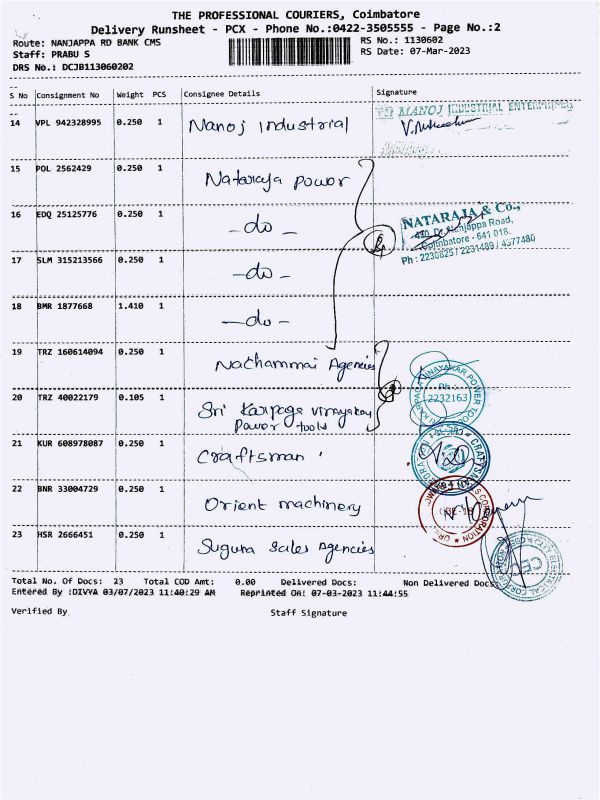 THE PROFESSIONAL COURIERS, Coimbatore
Delivery Runsheet - PCX - Phone No.:0422-3505555 - Page No.:2
Route: NANJAPPA RD BANK CMS RS No.: 1130602
Staff: PRABU S RS Date: 07-Mar-2023
DRS No.: DCJB113060202
S No Consignment No Weight PCS Consignee Details Signature
14 VPL 942328995 0.250 1 Manoj industrial MANOJ INDUSTRIAL ENTERPRISES
15 POL 2562429 0.250 1 Nataraja power
16 EDQ 25125776 0.250 1 -do-
NATARAJA & Co.,
430, Dr. Nanjappa Road,
Coimbatore - 641 018.
Ph : 2230825 / 2231489 / 4377480
17 SLM 315213566 0.250 1 -do-
18 BMR 1877668 1.410 1 -do-
19 TRZ 160614094 0.250 1 Nachammai Agencies
20 TRZ 40022179 0.105 1 Sri Karpaga vinayakar
power tools
Ph :
2232163
21 KUR 608978087 0.250 1 Craftsman
22 BNR 33004729 0.250 1 Orient machinery
23 HSR 2666451 0.250 1 Suguna Sales Agencies
CEC
Total No. Of Docs: 23 Total COD Amt: 0.00 Delivered Docs: Non Delivered Docs:
Entered By :DIVYA 03/07/2023 11:40:29 AM Reprinted On: 07-03-2023 11:44:55
Verified By Staff Signature